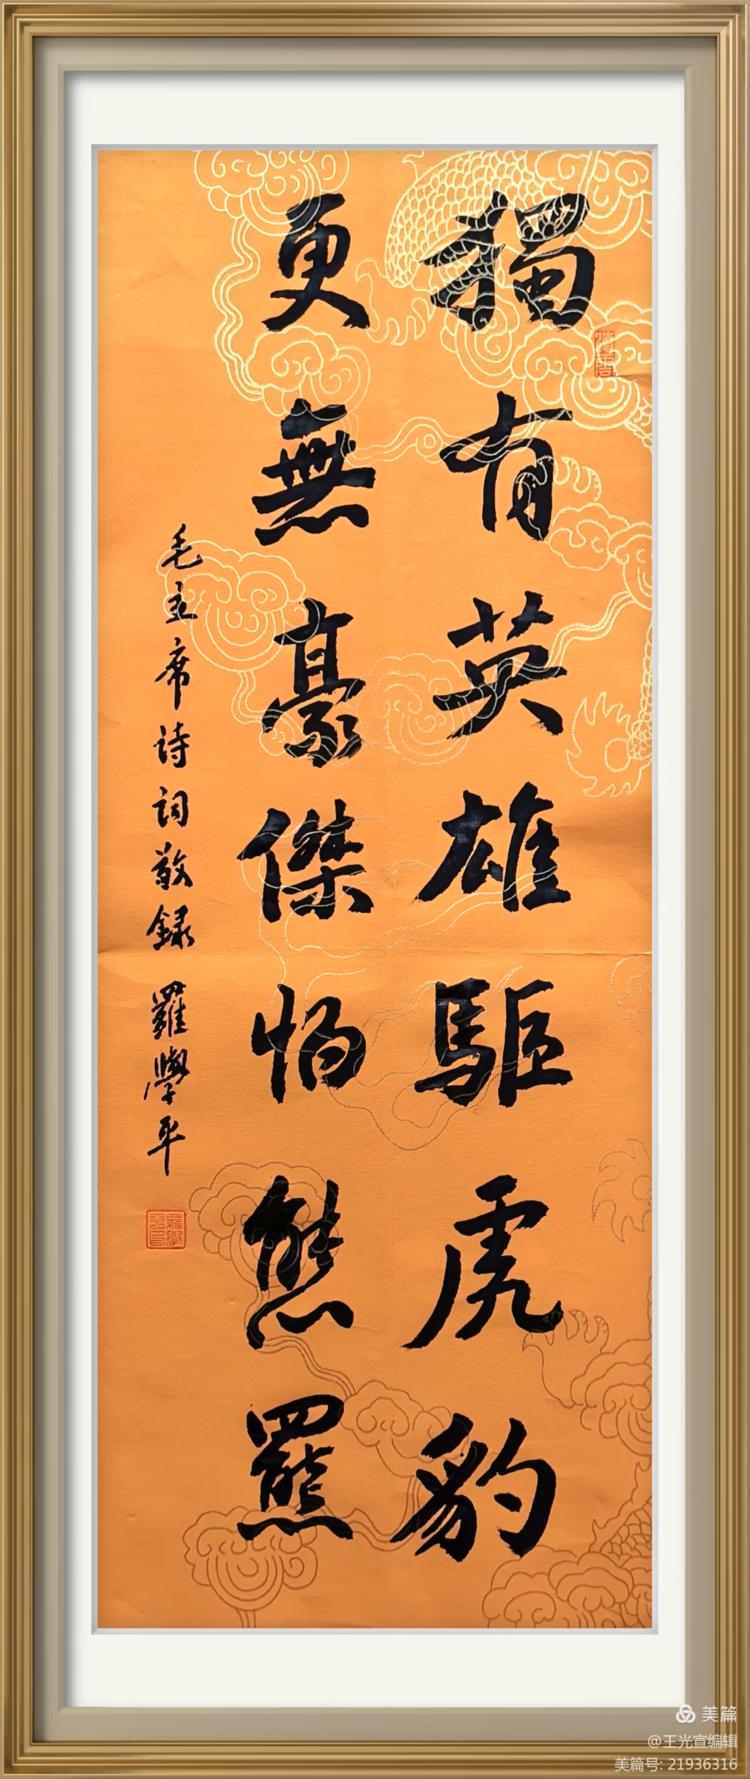 獨有英雄驅虎豹
更無豪傑怕熊羆
毛主席诗词敬録 羅學平
美篇
@王光宣编辑
美篇号: 21936316